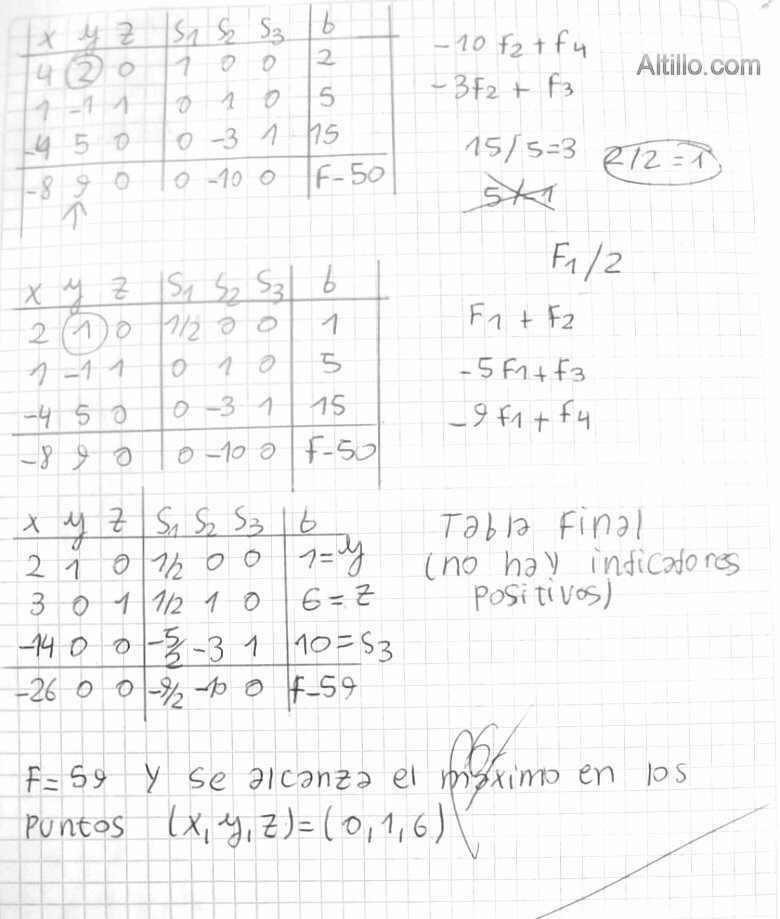 x y z | S1 S2 S3 | b
4 2 0 | 1 0 0 | 2
1 -1 1 | 0 1 0 | 5
-4 5 0 | 0 -3 1 | 15
-8 9 0 | 0 -10 0 | F-50
↑
-10 F2 + F4
-3F2 + F3
15/5=3 2/2=1
5/-1
F1/2
Altillo.com
x y z | S1 S2 S3 | b
2 1 0 | 1/2 0 0 | 1
1 -1 1 | 0 1 0 | 5
-4 5 0 | 0 -3 1 | 15
-8 9 0 | 0 -10 0 | F-50
F1 + F2
-5F1+F3
-9F1+F4
x y z | S1 S2 S3 | b
2 1 0 | 1/2 0 0 | 1=y
3 0 1 | 1/2 1 0 | 6=z
-14 0 0 | -5/2 -3 1 | 10=S3
-26 0 0 | -9/2 -10 0 | F-59
Tabla Final
(no hay indicadores
positivos)
F=59 y se alcanza el máximo en los
puntos (x,y,z)=(0,1,6)